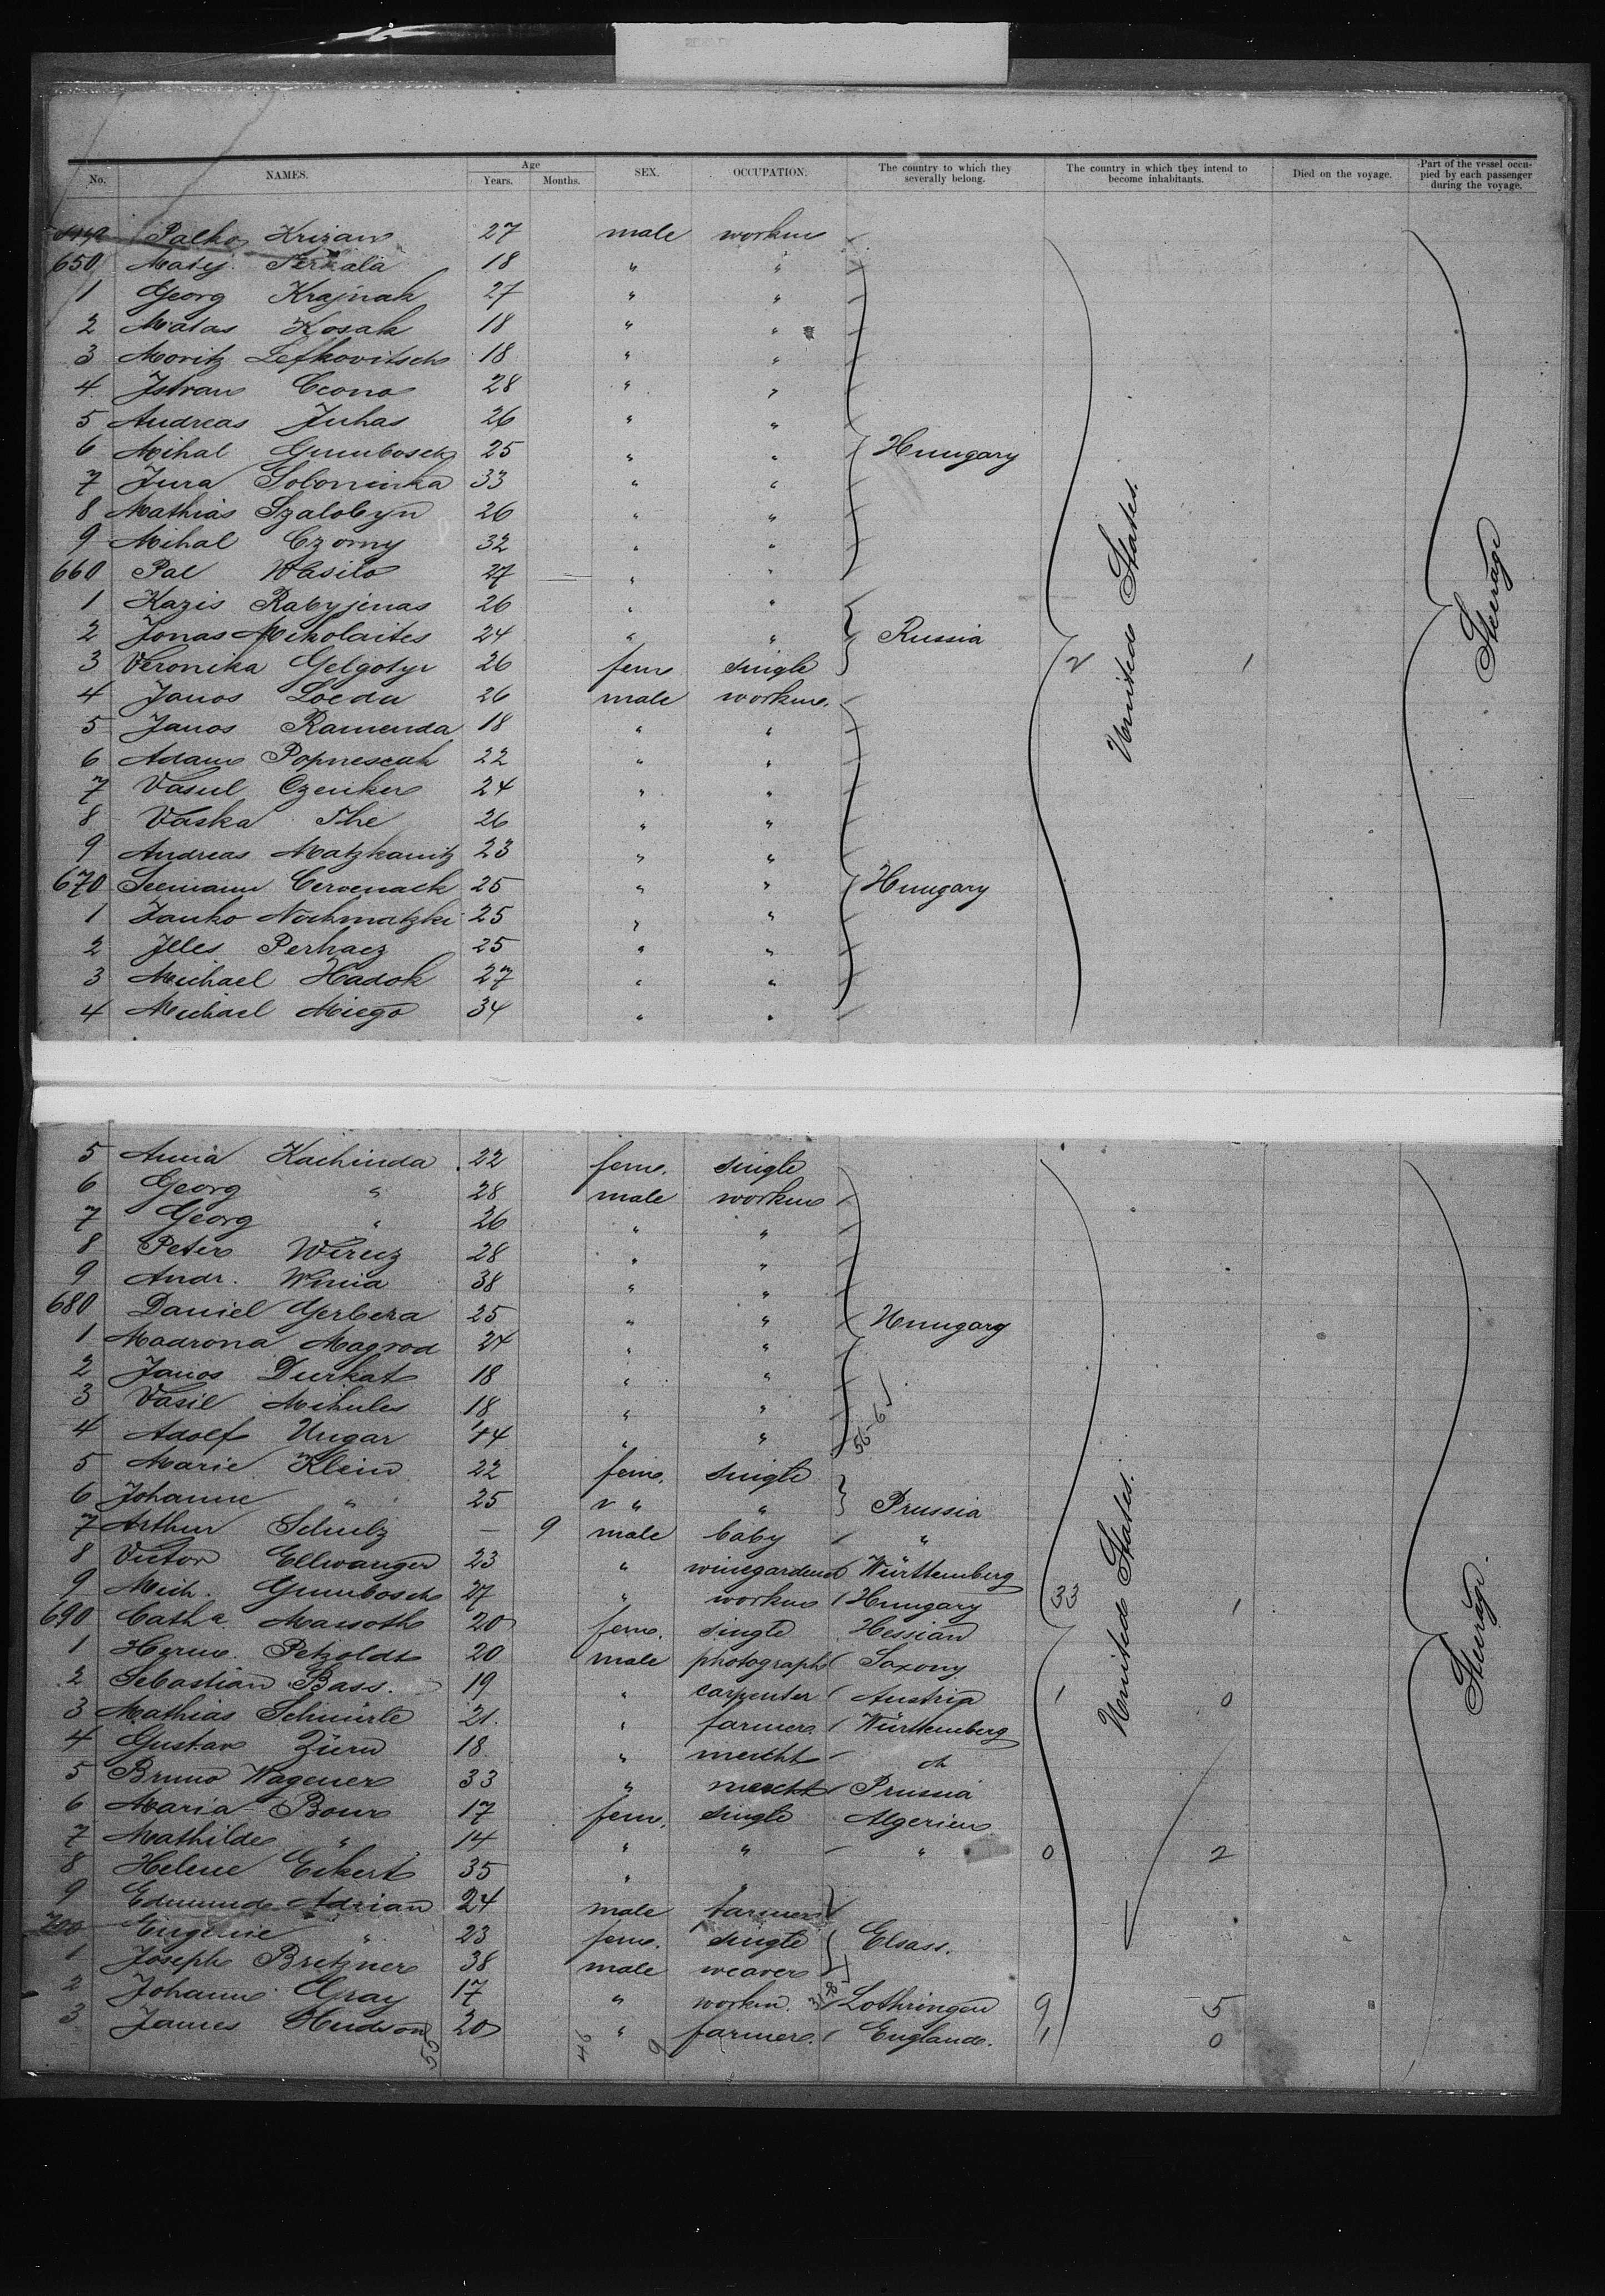 No. NAMES. Age Years. Months. SEX. OCCUPATION. The country to which they severally belong. The country in which they intend to become inhabitants. Died on the voyage. Part of the vessel occupied by each passenger during the voyage.
Palko Krizan 27 male workm
650 Matij 18 " "
1 Georg Krajnak 27 " "
2 Matas Kosak 18 " "
3 Moritz Lefkovitsch 18 " "
4 Istvan 28 " "
5 Andreas Juhas 26 " "
6 Mihal Gumbosch 25 " " Hungary
7 Jura Soloninka 33 " "
8 Mathias 26 " "
9 Mihal Czorny 32 " "
660 Pal Wasilo 27 " "
1 Kazis Rabyjenas 26 " "
2 Jonas Mikolaites 24 " " Russia
3 Veronika 26 fem single 2 1
4 Janos 26 male workm. United States. Steerage
5 Janos Ramenda 18 " "
6 Adam 22 " "
7 Vasul Czenker 24 " "
8 Vaska 26 " "
9 Andreas 23 " "
670 Cervenack 25 " " Hungary
1 Janko 25 " "
2 Illes Perhacz 25 " "
3 Michael Hadok 27 " "
4 Michael Miego 34 " "
5 Anna Kachinda 22 fem. single
6 Georg " 28 male workm
7 Georg " 26 " "
8 Peter 28 " "
9 Andr. 38 " "
680 Daniel Gerbera 25 " " Hungary
1 24 " "
2 Janos Durkat 18 " "
3 Vasil Mihules 18 " "
4 Adolf Ungar 44 " "
5 Marie Klein 22 fem. single
6 Johanne " 25 " " Prussia
7 Arthur Schulz — 9 male baby "
8 Victor Ellwanger 23 " Württemberg
9 Mich. Gumbosch 27 " workm Hungary 33 1
690 20 fem. single Hessian
1 Herm. Petzoldt 20 male photograph Saxony
2 Sebastian Bass. 19 " carpenter Austria 1 0
3 Mathias Schnürle 21. " farmer. Württemberg
4 Gustav Zürn 18 "
5 Bruno Wagener 33 " Prussia
6 Maria Bour 17 fem. single Algerien
7 Mathilde " 14 " " " 0 2
8 Helene Eckert 35 " "
9 Edmund Adrian 24 male farmer
700 Eugenie " 23 fem. single Elsass.
1 Joseph Bretzner 38 male weaver
2 Johann Gray 17 " workm. Lothringen 9 5
3 James Hudson 20 " farmer. England. 1 0
United States. Steerage.
55 46 9